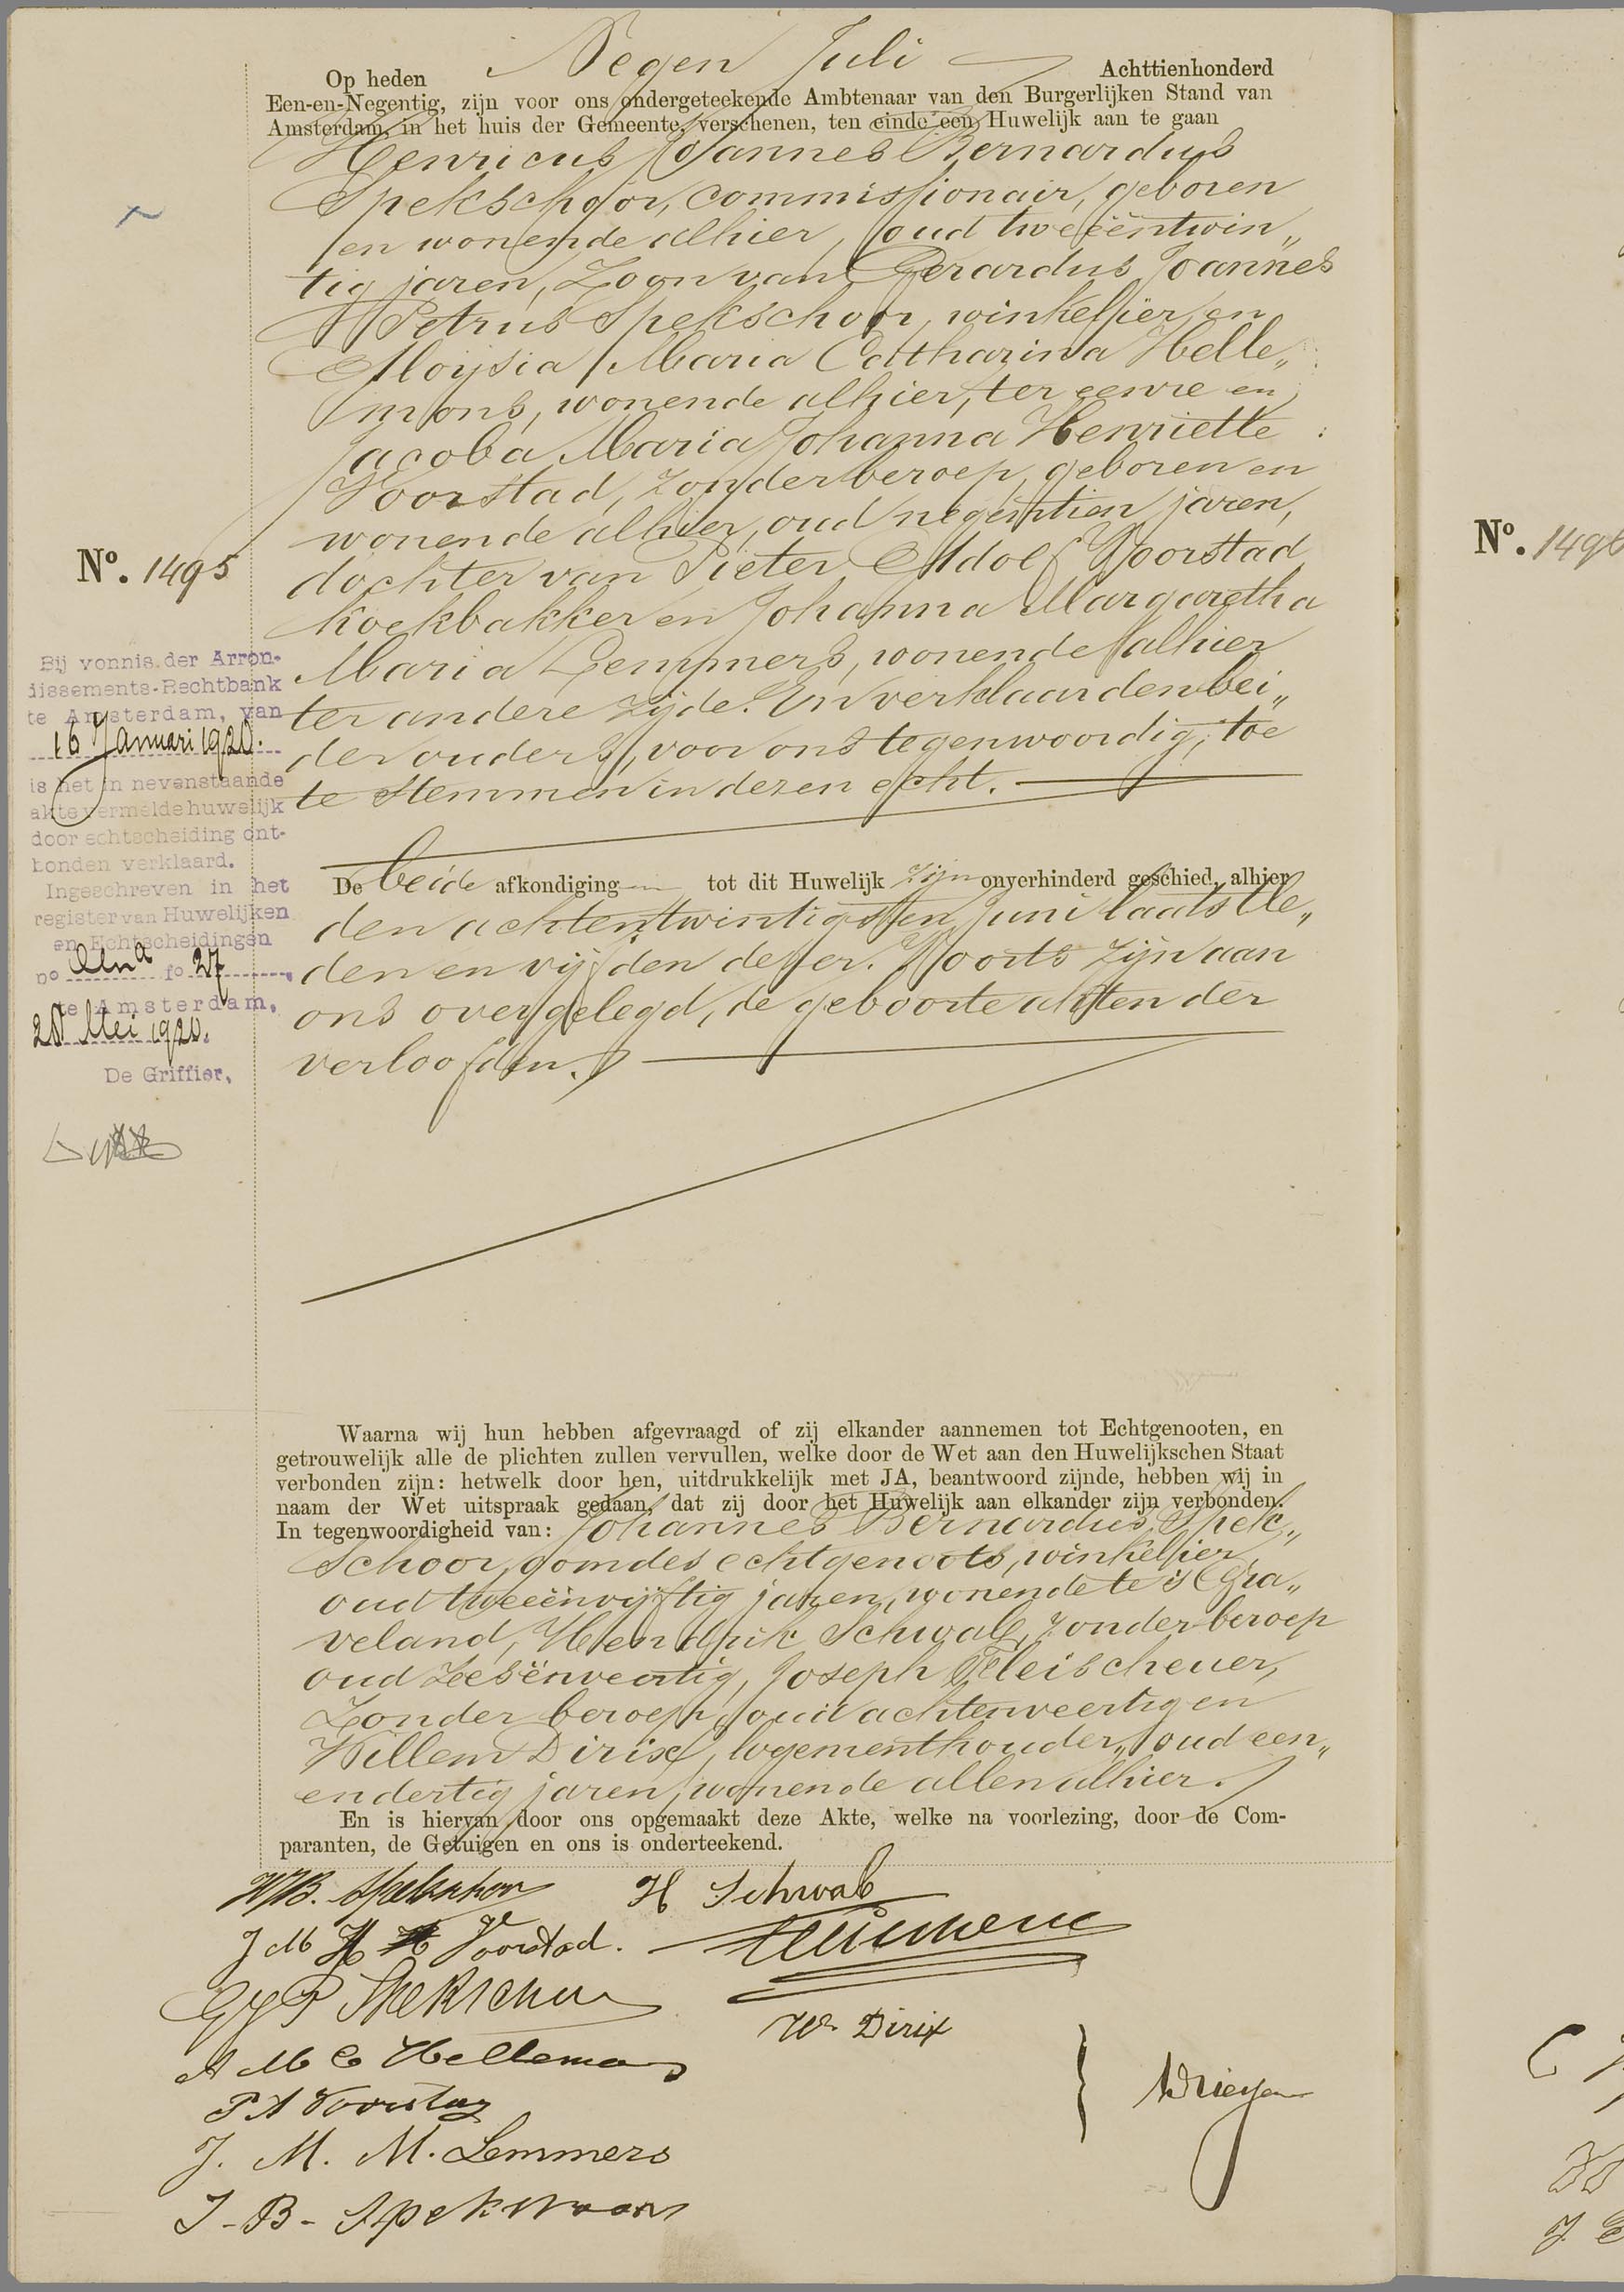 Op heden Negen Juli Achttienhonderd
Een-en-Negentig, zijn voor ons ondergeteekende Ambtenaar van den Burgerlijken Stand van
Amsterdam, in het huis der Gemeente, verschenen, ten einde een Huwelijk aan te gaan
Henricus Joannes Bernardus
Spekschoor, commissionair, geboren
en wonende alhier, oud tweeëntwin„
tig jaren, Zoon van Gerardus Joannes
Petrus Spekschoor, winkelier en
Aloijsia Maria Catharina Helle„
mons, wonende alhier, ter eenre en
Jacoba Maria Johanna Henriette
Voorstad, zonder beroep, geboren en
wonende alhier, oud negentien jaren,
dochter van Pieter Adolf Voorstad
koekbakker en Johanna Margaretha
Maria Lemmers, wonende alhier
ter andere zijde. En verklaarden bei„
der ouders, voor ons tegenwoordig, toe
te stemmen in dezen echt.
Nº. 1495
Bij vonnis der Arron-
dissements-Rechtbank
te Amsterdam, van
16 Januari 1920.
is het in nevenstaande
akte vermelde huwelijk
door echtscheiding ont-
bonden verklaard.
Ingeschreven in het
register van Huwelijken
en Echtscheidingen
no fo 27
te Amsterdam,
28 Mei 1920.
De Griffier,
De beide afkondigingen tot dit Huwelijk zijn onverhinderd geschied, alhier
den achtentwintigsten Juni laatstle„
den en vijfden dezer. Voorts zijn aan
ons overgelegd, de geboorteakten der
verloofden.
Waarna wij hun hebben afgevraagd of zij elkander aannemen tot Echtgenooten, en
getrouwelijk alle de plichten zullen vervullen, welke door de Wet aan den Huwelijkschen Staat
verbonden zijn: hetwelk door hen, uitdrukkelijk met JA, beantwoord zijnde, hebben wij in
naam der Wet uitspraak gedaan, dat zij door het Huwelijk aan elkander zijn verbonden.
In tegenwoordigheid van: Johannes Bernardus Spek„
schoor, oom des echtgenoots, winkelier,
oud tweeënvijftig jaren, wonende te 's Gra„
veland, Hendrik Schwab, zonder beroep
oud zesenveertig, Joseph Fleischeuer,
zonder beroep, oud achtenveertig en
Willem Dirix, logementhouder, oud een„
endertig jaren, wonende allen alhier.
En is hiervan door ons opgemaakt deze Akte, welke na voorlezing, door de Com-
paranten, de Getuigen en ons is onderteekend.
HJB. Spekschoor
H Schwab
Voorstad.
GJP Spekschoor
Wm Dirix
A M C Hellemons
P A Voorstad
J. M. M. Lemmers
J-B- Spekschoor
Nº. 1496